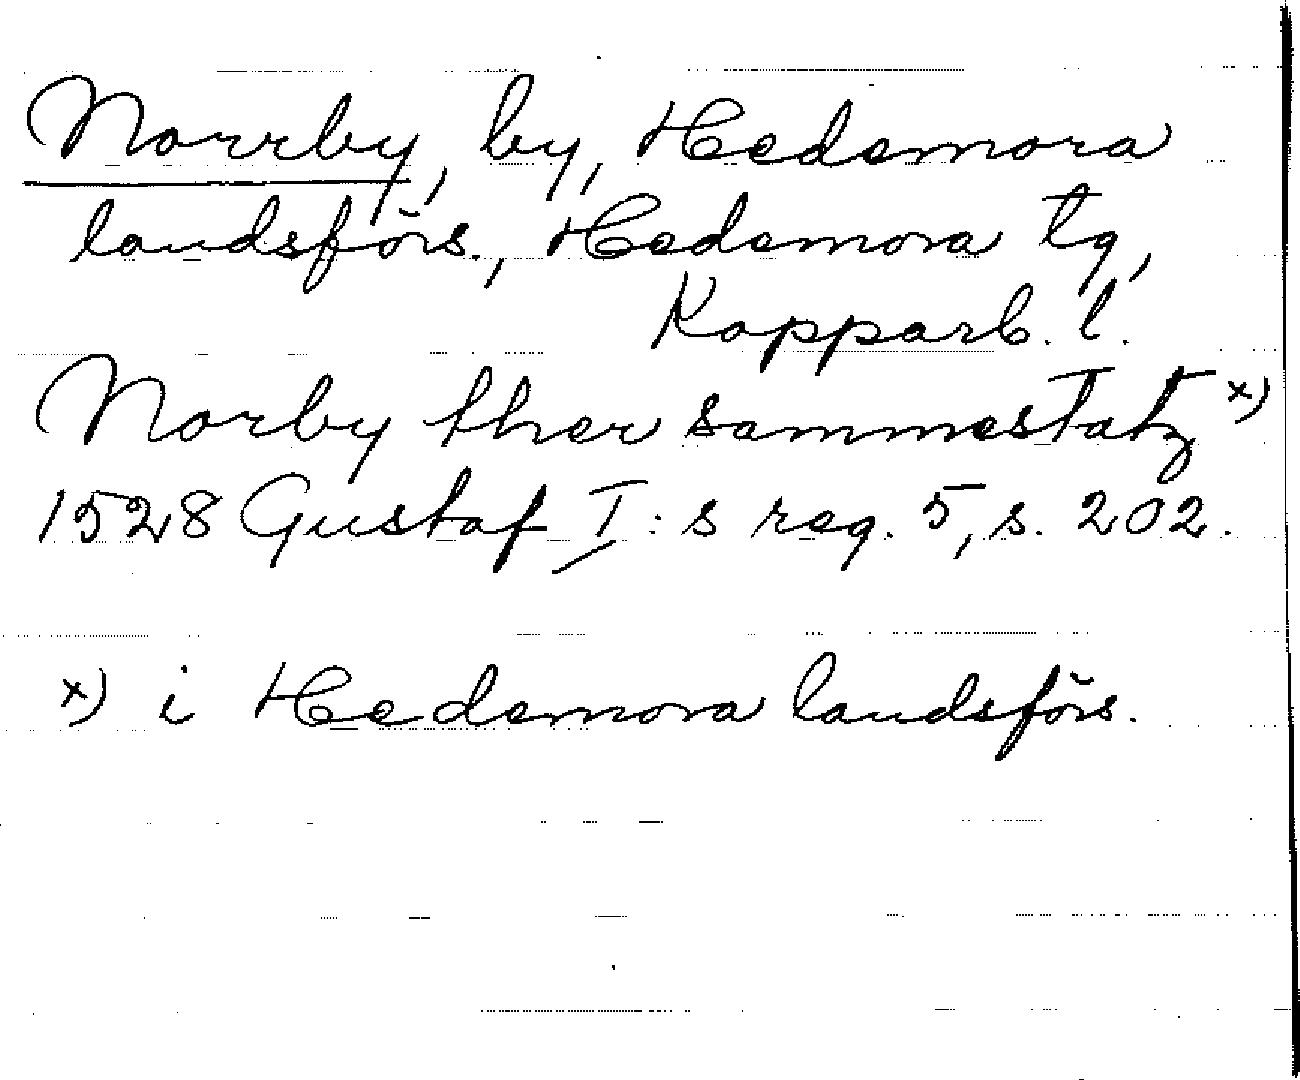 Norrby, by, Hedemora
landsförs., Hedemora tg,
Kopparb. l.
Norby ther sammestatz x)
1528 Gustaf I: s reg. 5, s. 202.
x) i Hedemora landsförs.